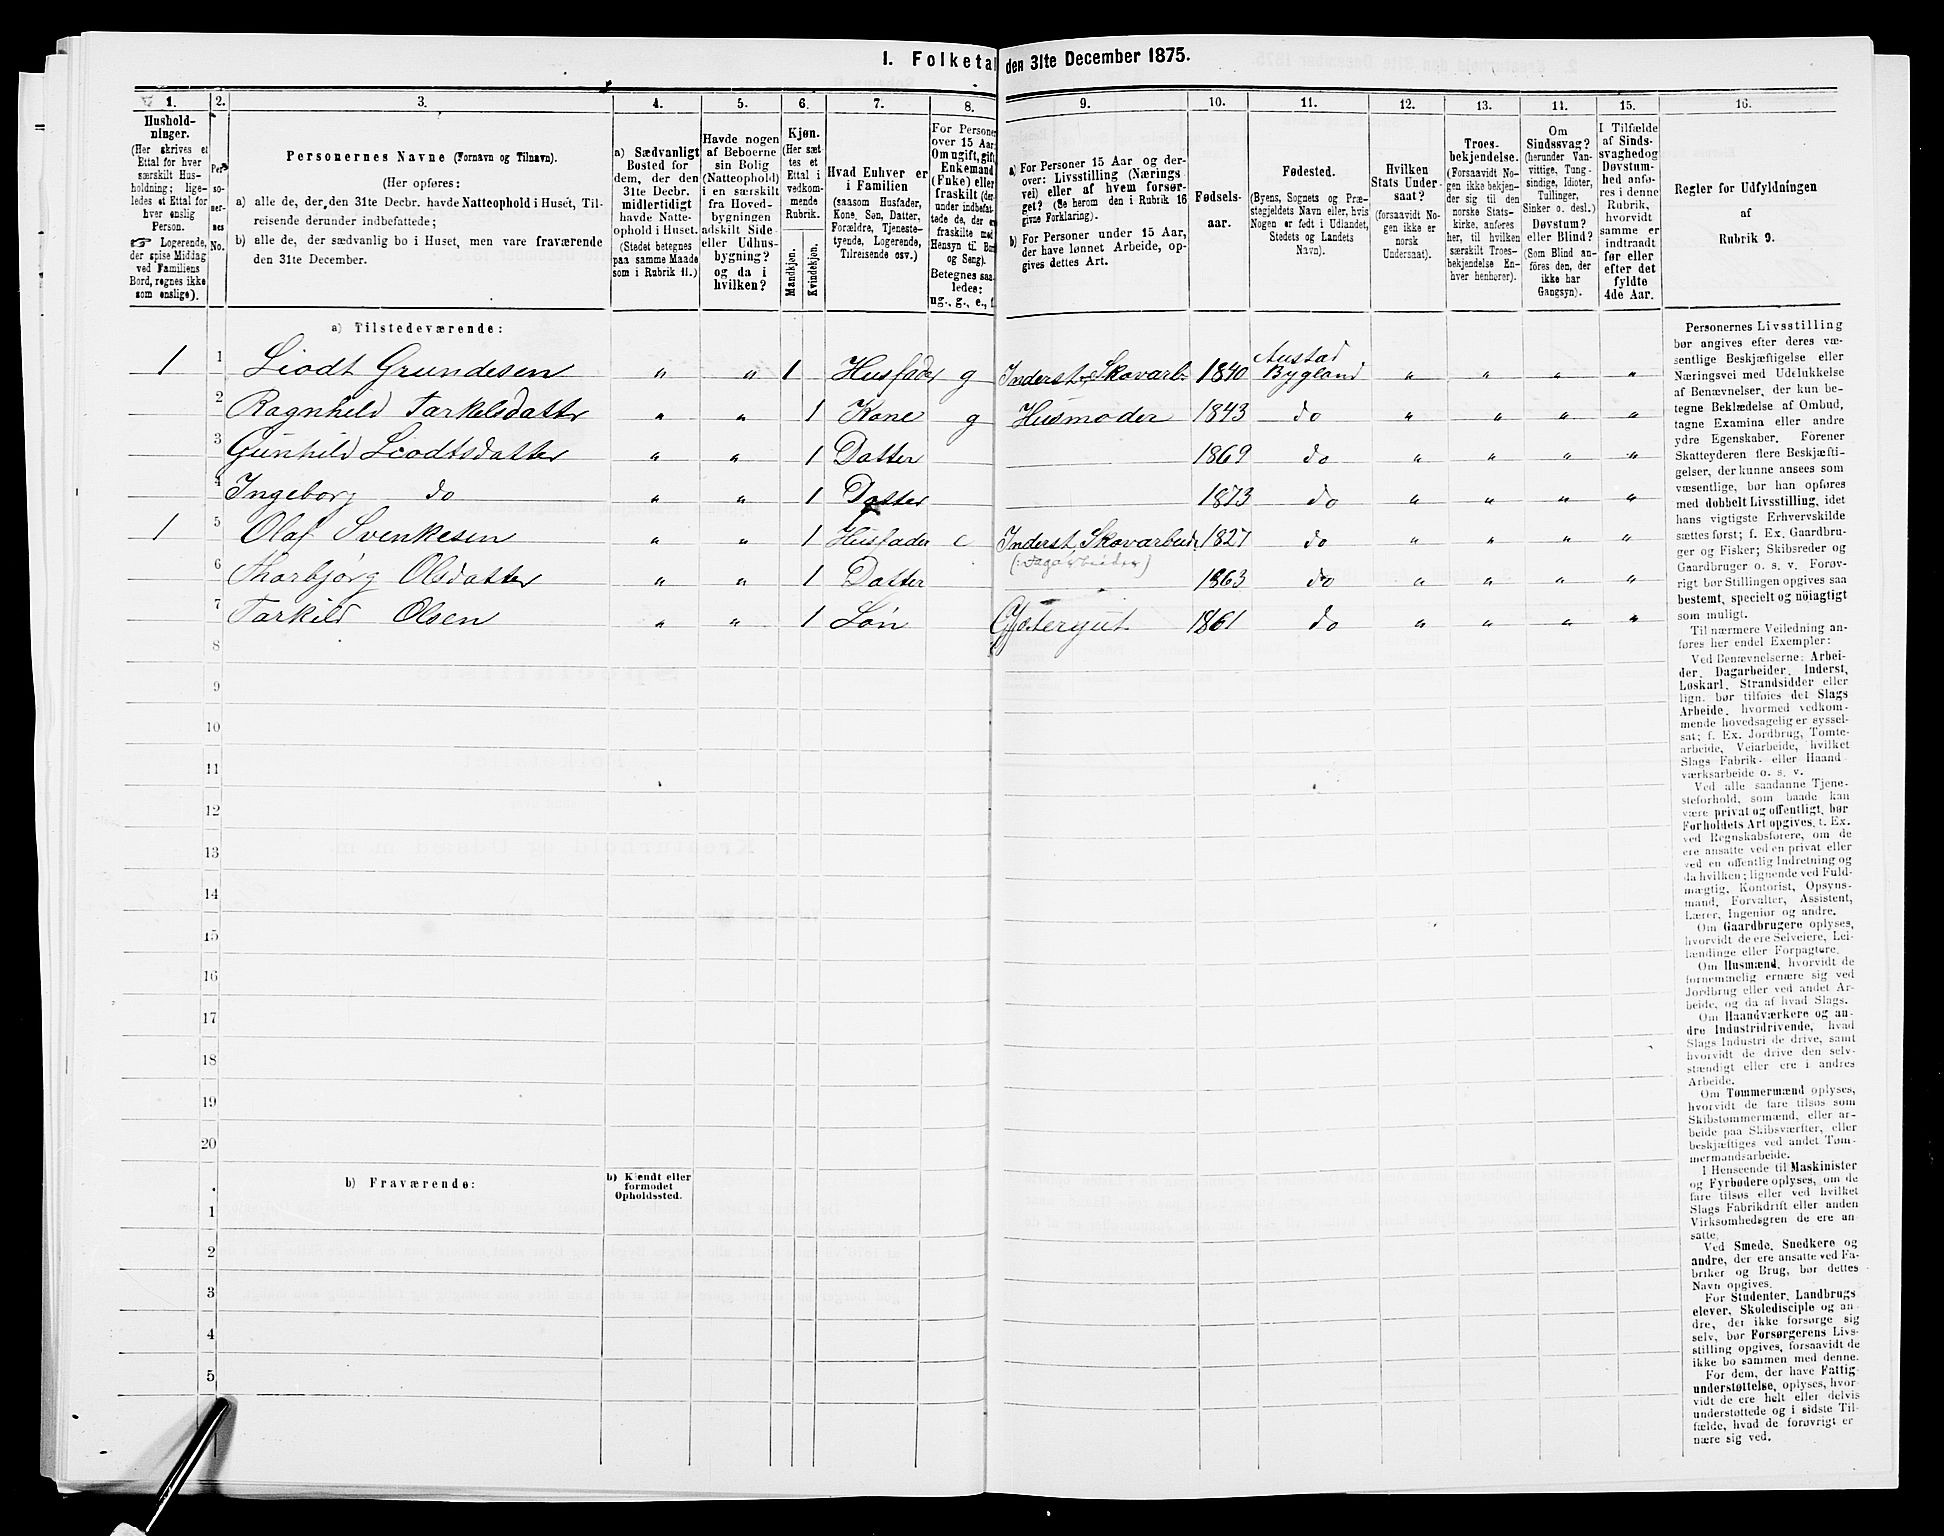 I. Folketal den 31te December 1875.
1. 2. 3. 4. 5. 6. 7. 8. 9. 10. 11. 12. 13. 14. 15. 16.
Hushold-
ninger.
(Her skrives et
Ettal for hver
særskilt Hus-
holdning; lige-
ledes et Ettal for
hver enslig
Person.
☞ Logerende,
der spise Middag
ved Familiens
Bord, regnes ikke
som enslige).
Per-
so-
ner-
nes
No.
Personernes Navne (Fornavn og Tilnavn).
(Her opføres:
a) alle de, der den 31te Decbr. havde Natteophold i Huset, Til-
reisende derunder indbefattede;
b) alle de, der sædvanlig bo i Huset, men vare fraværende
den 31te December.
a) Sædvanligt
Bosted for
dem, der den
31te Decbr.
midlertidigt
havde Natte-
ophold i Huset.
(Stedet betegnes
paa samme Maade
som i Rubrik 11.)
Havde nogen
af Beboerne
sin Bolig
(Natteophold)
i en særskilt
fra Hoved-
bygningen
adskilt Side-
eller Udhus-
bygning?
og da i
hvilken?
Kjøn.
(Her sæt-
tes et
Ettal i
vedkom-
mende
Rubrik.
Mandkjøn.
Kvindekjøn.
Hvad Enhver er
i Familien
(saasom Husfader,
Kone, Søn, Datter,
Forældre, Tjeneste-
tyende, Logerende,
Tilreisende osv.)
For Personer
over 15 Aar:
Om ugift, gift,
Enkemand
(Enke) eller
fraskilt (der-
under indbefat-
tede de, der ere
fraskilte med
Hensyn til Bord
og Seng).
Betegnes saa-
ledes:
ug., g., e., f.
a) For Personer 15 Aar og der-
over: Livsstilling (Nærings-
vei) eller af hvem forsør-
get? (Se herom den i Rubrik 16
givne Forklaring).
b) For Personer under 15 Aar,
der have lønnet Arbeide, op-
gives dettes Art.
Fødsels-
aar.
Fødested.
(Byens, Sognets og Præ-
stegjeldets Navn eller, hvis
Nogen er født i Udlandet,
Stedets og Landets
Navn).
Hvilken
Stats Under-
saat?
(forsaavidt No-
gen ikke er
norsk
Undersaat).
Troes-
bekjendelse.
(Forsaavidt No-
gen ikke bekjen-
der sig til den
norske Stats-
kirke, anføres
her, til hvilken
særskilt Troes-
bekjendelse En-
hver henhører).
Om
Sindssvag?
(herunder Van-
vittige, Tung-
sindige, Idioter,
Tullinger,
Sinker o. desl.)
Døvstum?
eller Blind?
(Som Blind an-
føres den, der
ikke har
Gangsyn).
I Tilfælde
af Sinds-
svaghed og
Døvstum-
hed anfø-
res i denne
Rubrik,
hvorvidt
samme er
indtraadt
før eller
efter det
fyldte
4de Aar.
Regler for Udfyldningen
af
Rubrik 9.
a) Tilstedeværende:
1 1 Liodt Grundesen " " 1 Husfader g Inderst, Skovarb. 1840 Austad Bygland " " " "
2 Ragnhild Tarkelsdatter " " 1 Kone g Husmoder 1843 do " " " "
3 Gunhild Liodtsdatter " " 1 Datter 1869 do " " " "
4 Ingeborg do " " 1 Datter 1873 do " " " "
1 5 Olaf Svenkesen " " 1 Husfader e Inderst, Skovarbeider 1827 do " " " "
6 Tharbjørg Olsdatter " " 1 Datter 1863 do " " " "
7 Tarkild Olsen " " 1 Søn Gjætergut 1861 do " " " "
8
9
10
11
12
13
14
15
16
17
18
19
20
b) Fraværende:
b) Kjendt eller
formodet
Opholdssted.
1
2
3
4
5
Personernes Livsstilling
bør angives efter deres væ-
sentlige Beskjæftigelse eller
Næringsvei med Udelukkelse
af Benævnelser, der kun be-
tegne Beklædelse af Ombud,
tagne Examina eller andre
ydre Egenskaber. Forener
Skatteyderen flere Beskjæfti-
gelser, der kunne ansees som
væsentlige, bør han opføres
med dobbelt Livsstilling, idet
hans vigtigste Erhvervskilde
sættes først; f. Ex. Gaardbru-
ger og Fisker; Skibsreder og
Gaardbruger o. s. v. Forøv-
rigt bør Stillingen opgives saa
bestemt, specielt og nøiagtigt
som muligt.
Til nærmere Veiledning an-
føres her endel Exempler:
Ved Benævnelserne: Arbei-
der, Dagarbeider, Inderst,
Løskarl, Strandsidder eller
lign. bør tilføies det Slags
Arbeide, hvormed vedkom-
mende hovedsagelig er syssel-
sat; f. Ex. Jordbrug, Tomte-
arbeide, Veiarbeide, hvilket
Slags Fabrik- eller Haand-
værksarbeide o. s. v.
Ved alle saadanne Tjene-
steforhold, som baade kan
være privat og offentligt, bør
Forholdets Art opgives, t. Ex.
ved Regnskabsførere, om de
ere ansatte ved en privat eller
ved en offentlig Indretning og
da hvilken; lignende ved Fuld-
mægtig, Kontorist, Opsyns-
mand, Forvalter, Assistent,
Lærer, Ingeniør og andre.
Om Gaardbrugere oplyses,
hvorvidt de ere Selveiere, Lei-
lændinge eller Forpagtere.
Om Husmænd, hvorvidt de
fornemmelig ernære sig ved
Jordbrug eller ved andet Ar-
beide, og da af hvad Slags.
Om Haandværkere og an-
dre Industridrivende, hvad
Slags Industri de drive, samt
hvorvidt de drive den selv-
stændigt eller ere i andres
Arbeide.
Om Tømmermænd oplyses,
hvorvidt de fare tilsøs som
Skibstømmermænd, eller ar-
beide paa Skibsværfter, eller
beskjæftiges ved andet Tøm-
mermandsarbeide.
I Henseende til Maskinister
og Fyrbødere oplyses, om de
fare tilsøs eller ved hvilket
Slags Fabrikdrift eller anden
Virksomhedsgren de ere an-
satte.
Ved Smede, Snedkere og
andre, der ere ansatte ved Fa-
briker og Brug, bør dettes
Navn opgives.
For Studenter, Landbrugs-
elever, Skoledisciple og an-
dre, der ikke forsørge sig
selv, bør Forsørgerens Livs-
stilling opgives, forsaavidt de
ikke bo sammen med denne.
For dem, der have Fattig-
understøttelse, oplyses, hvor-
vidt de ere helt eller delvis
understøttede og i sidste Til-
fælde, hvad de forøvrigt er-
nære sig ved.